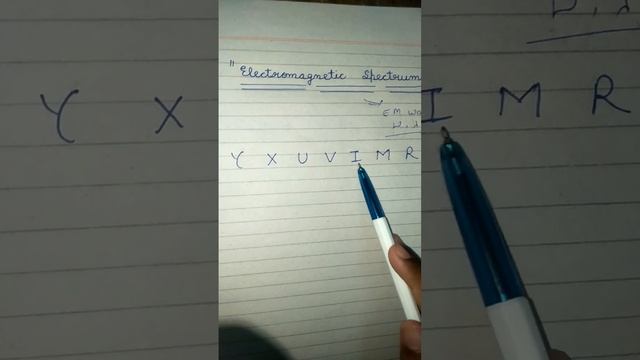 " Electromagnetic Spectrum
EM
Y X U V I M R